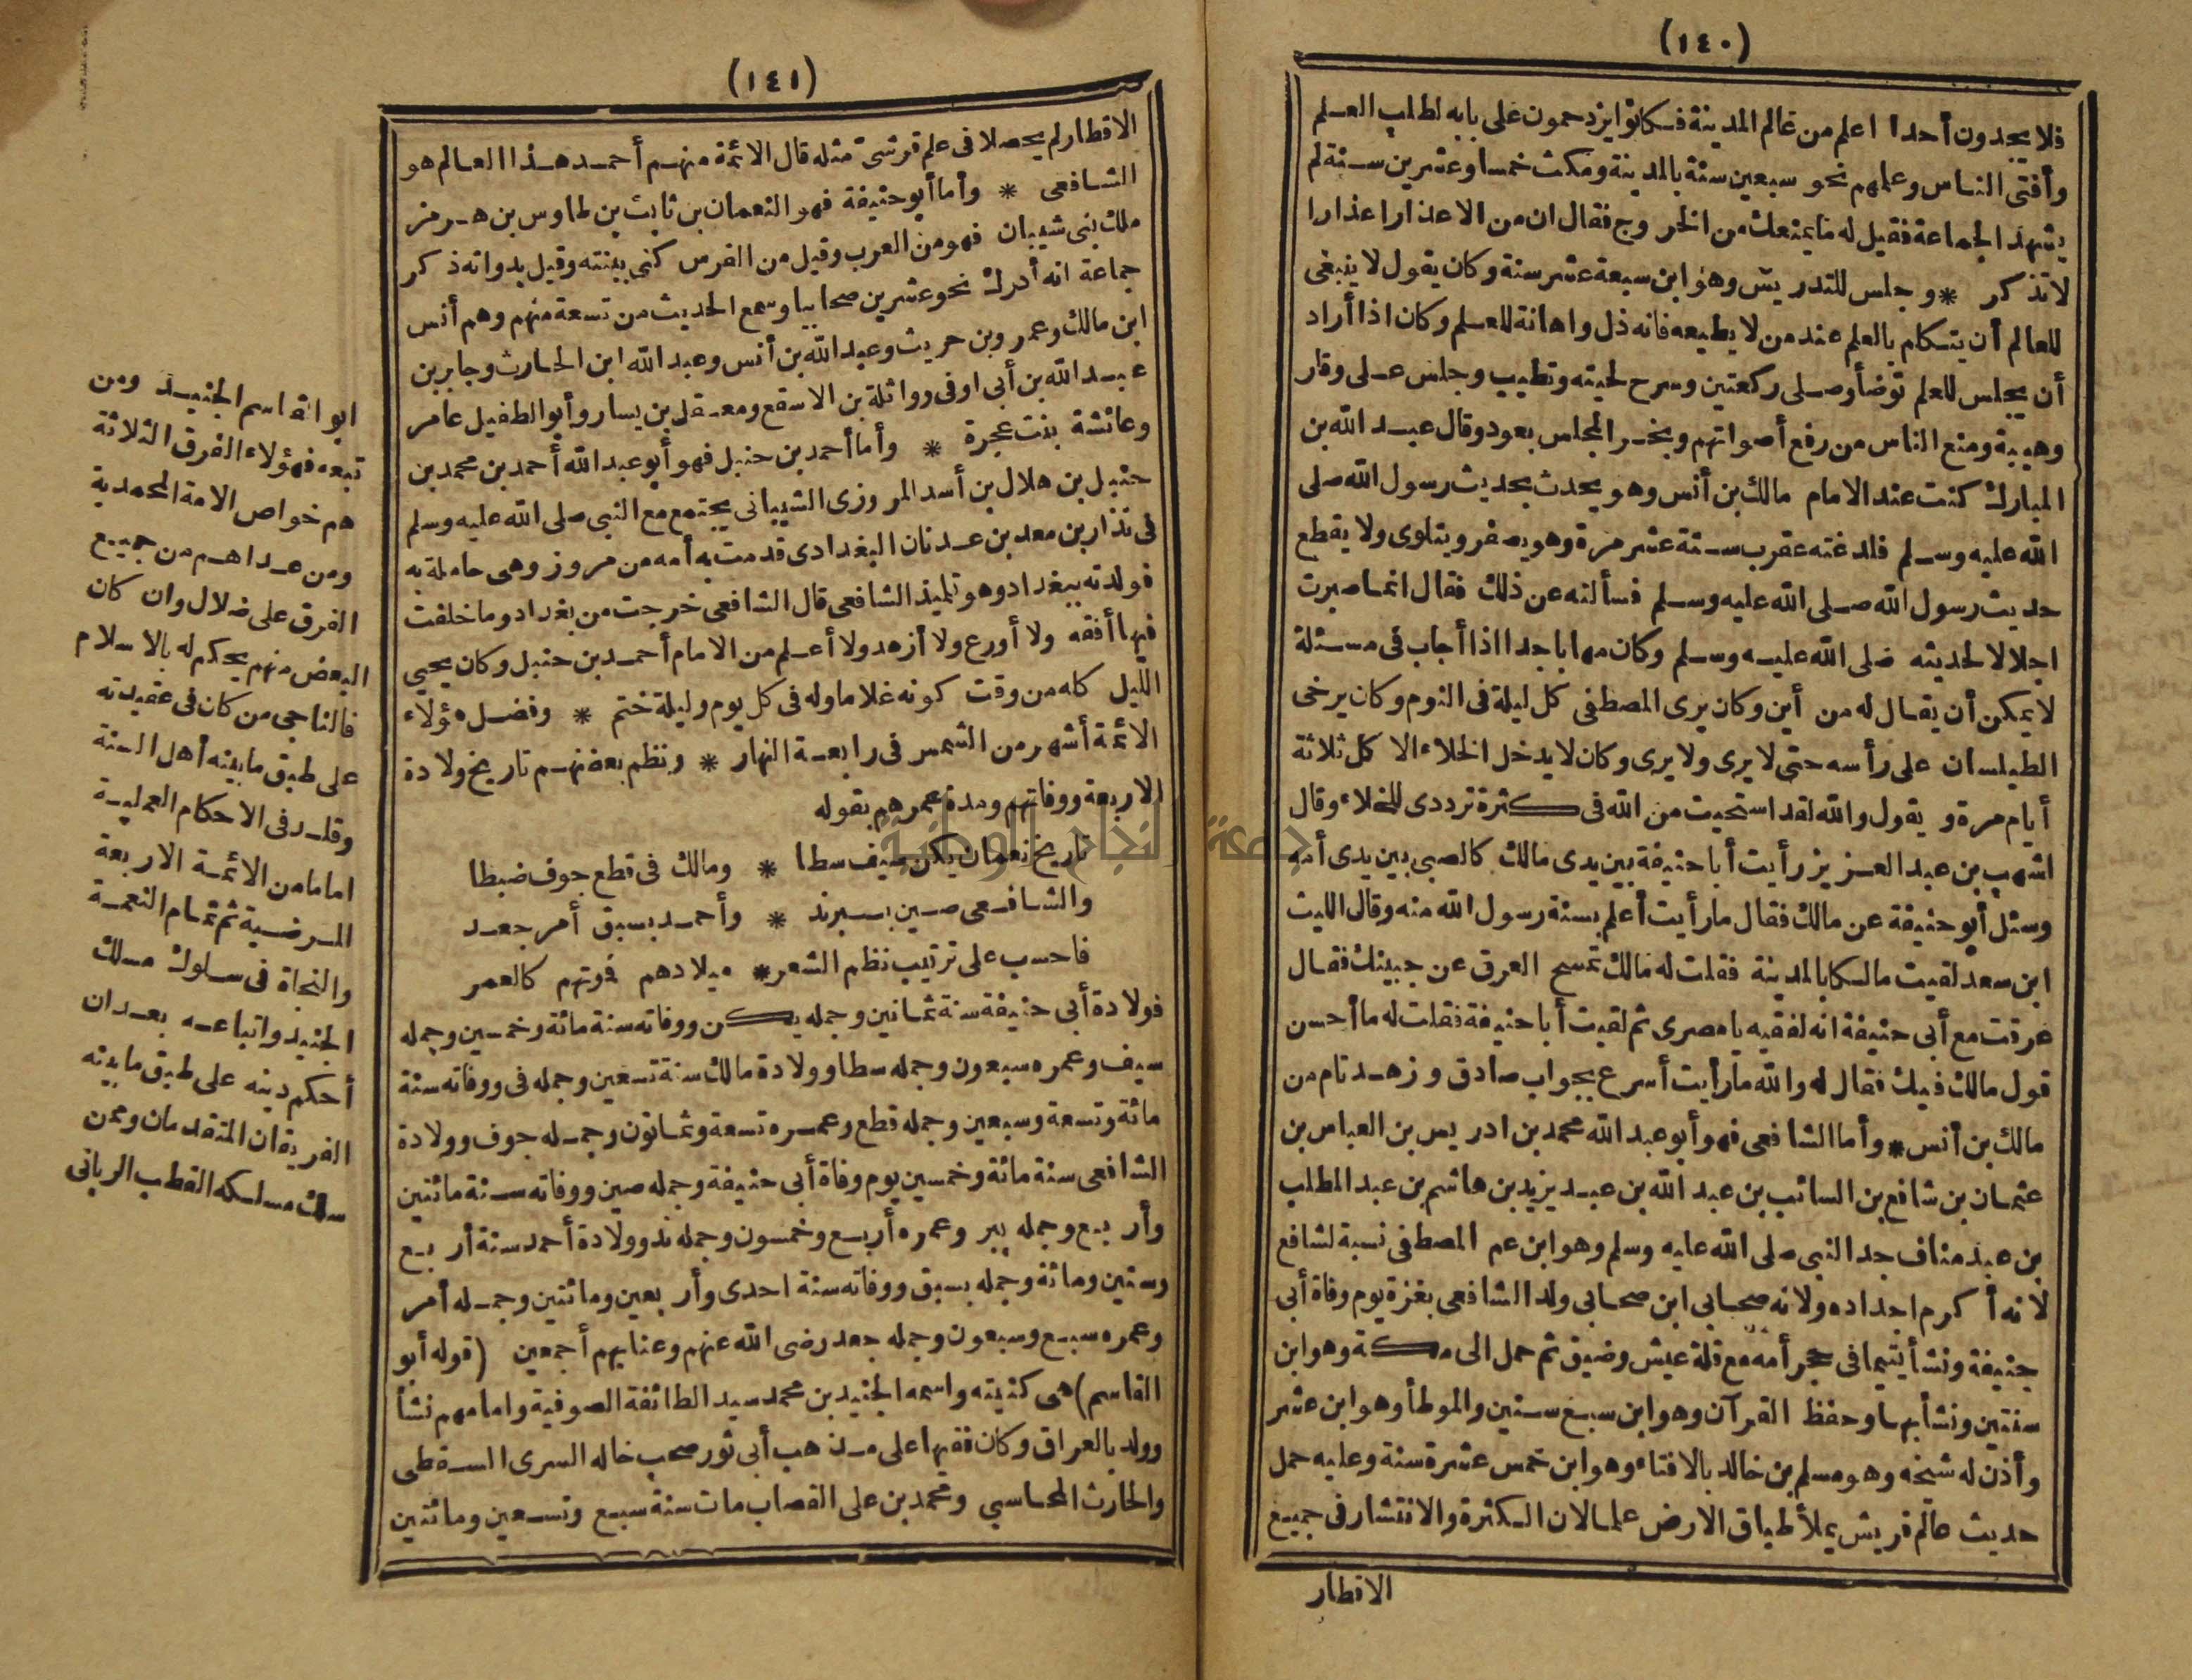 (١٤٠)
فلا يجدون أحدا اعلم من عالم المدينة فكانوا يزدحمون على بابه لطلب العلم
وأفتى الناس وعلمهم نحو سبعين سنة بالمدينة ومكث خمسا وعشرين سنة لم
يشهد الجماعة فقيل له ما يمنعك من الخروج فقال ان من الاعذار اعذارا
لا تذكر * وجلس للتدريس وهو ابن سبعة عشر سنة وكان يقول لا ينبغي
للعالم أن يتكلم بالعلم عند من لا يطيعه فانه ذل واهانة للعلم وكان اذا أراد
أن يجلس للعلم توضأ وصلى ركعتين وسرح لحيته وتطيب وجلس على وقار
وهيبة ومنع الناس من رفع أصواتهم وبخر المجلس بعود وقال عبد الله بن
المبارك كنت عند الامام مالك بن أنس وهو يحدث بحديث رسول الله صلى
الله عليه وسلم فلدغته عقرب ستة عشر مرة وهو يصفر ويتلوى ولا يقطع
حديث رسول الله صلى الله عليه وسلم فسألته عن ذلك فقال انما صبرت
اجلالا لحديثه صلى الله عليه وسلم وكان مهابا جدا اذا أجاب في مسئلة
لا يمكن أن يقال له من أين وكان يرى المصطفى كل ليلة في النوم وكان يرخى
الطيلسان على رأسه حتى لا يرى ولا يرى وكان لا يدخل الخلاء الا كل ثلاثة
أيام مرة و يقول والله لقد استحييت من الله في كثرة ترددى للخلاء وقال
اشهب بن عبد العزيز رأيت أبا حنيفة بين يدى مالك كالصبي بين يدى أمه
وسئل أبو حنيفة عن مالك فقال ما رأيت أعلم بسنة رسول الله منه وقال الليث
ابن سعد لقيت مالكا بالمدينة فقلت له مالك تمسح العرق عن جبينك فقال
عرقت مع أبي حنيفة انه لفقيه يا مصرى ثم لقيت أبا حنيفة فقلت له ما أحسن
قول مالك فيك فقال له والله ما رأيت أسرع بجواب صادق وزهد تام من
مالك بن أنس * وأما الشافعي فهو أبو عبد الله محمد بن ادريس بن العباس بن
عثمان بن شافع بن السائب بن عبد الله بن عبد يزيد بن هاشم بن عبد المطلب
بن عبد مناف جد النبي صلى الله عليه وسلم وهو ابن عم المصطفى نسبة لشافع
لانه أكرم اجداده ولانه صحابي ابن صحابي ولد الشافعي بغزة يوم وفاة أبي
حنيفة ونشأ يتيما في حجر أمه مع قلة عيش وضيق ثم حمل الى مكة وهو ابن
سنتين ونشأ بها وحفظ القرآن وهو ابن سبع سنين والموطأ وهو ابن عشر
وأذن له شيخه وهو مسلم بن خالد بالافتاء وهو ابن خمس عشرة سنة وعليه حمل
حديث عالم قريش يملأ طباق الارض علما لان الكثرة والانتشار في جميع
الاقطار
(١٤١)
الاقطار لم يحصلا في علم قرشي مثله قال الائمة منهم أحمد هذا العالم هو
الشافعي * وأما أبو حنيفة فهو النعمان بن ثابت بن طاوس بن هرمز
ملك بني شيبان فهو من العرب وقيل من الفرس كنى ببنته وقيل بدواته ذكر
جماعة انه أدرك نحو عشرين صحابيا وسمع الحديث من تسعة منهم وهم أنس
ابن مالك وعمرو بن حريث وعبد الله بن أنس وعبد الله ابن الحارث وجابر بن
عبد الله بن أبي اوفى وواثلة بن الاسقع ومعقل بن يسار وأبو الطفيل عامر
وعائشة بنت عجرة * وأما أحمد بن حنبل فهو أبو عبد الله أحمد بن محمد بن
حنبل بن هلال بن أسد المروزى الشيباني يجتمع مع النبي صلى الله عليه وسلم
في نذار بن معد بن عدنان البغدادى قدمت به أمه من مروز وهى حاملة به
فولدته ببغداد وهو تلميذ الشافعي قال الشافعي خرجت من بغداد وما خلفت
فيها أفقه ولا أورع ولا أزهد ولا أعلم من الامام أحمد بن حنبل وكان يحيي
الليل كله من وقت كونه غلاما وله في كل يوم وليلة ختم * وفضل هؤلاء
الائمة أشهر من الشمس في رابعة النهار * ونظم بعضهم تاريخ ولادة
الاربعة ووفاتهم ومدة عمرهم بقوله
تاريخ نعمان يكن سيف سطا * ومالك في قطع جوف ضبطا
والشافعي صين ببير ند * وأحمد بسبق أمر جعد
فاحسب على ترتيب نظم الشعر * ميلادهم فموتهم كالعمر
فولادة أبي حنيفة سنة ثمانين وجمله يكن ووفاته سنة مائة وخمسين وجمله
سيف وعمره سبعون وجمله سطا وولادة مالك سنة تسعين وجمله في ووفاته سنة
مائة وتسعة وسبعين وجمله قطع وعمره تسعة وثمانون وجمله جوف وولادة
الشافعي سنة مائة وخمسين يوم وفاة أبي حنيفة وجمله صين ووفاته سنة مائتين
وأربع وجمله ببر وعمره أربع وخمسون وجمله ند وولادة أحمد سنة أربع
وستين ومائة وجمله بسبق ووفاته سنة احدى وأربعين ومائتين وجمله أمر
وعمره سبع وسبعون وجمله جعد رضى الله عنهم وعنا بهم أجمعين (قوله أبو
القاسم) هى كنيته واسمه الجنيد بن محمد سيد الطائفة الصوفية وامامهم نشأ
وولد بالعراق وكان فقيها على مذهب أبي ثور صحب خاله السرى السقطى
والحارث المحاسبي ومحمد بن على القصاب مات سنة سبع وتسعين ومائتين
ابو القاسم الجنيد ومن
تبعه فهؤلاء الفرق الثلاثة
هم خواص الامة المحمدية
ومن عداهم من جميع
الفرق على ضلال وان كان
البعض منهم يحكم له بالاسلام
فالناجى من كان في عقيدته
على طبق ما بينه أهل السنة
وقلد في الاحكام العملية
اماما من الائمة الاربعة
المرضية ثم تمام النعمة
والنجاة في سلوك مسلك
الجنيد واتباعه بعد ان
أحكم دينه على طبق ما بينه
الفريقان المتقدمان وممن
سلك مسلكه القطب الرباني
جامعة النجاح الوطنية